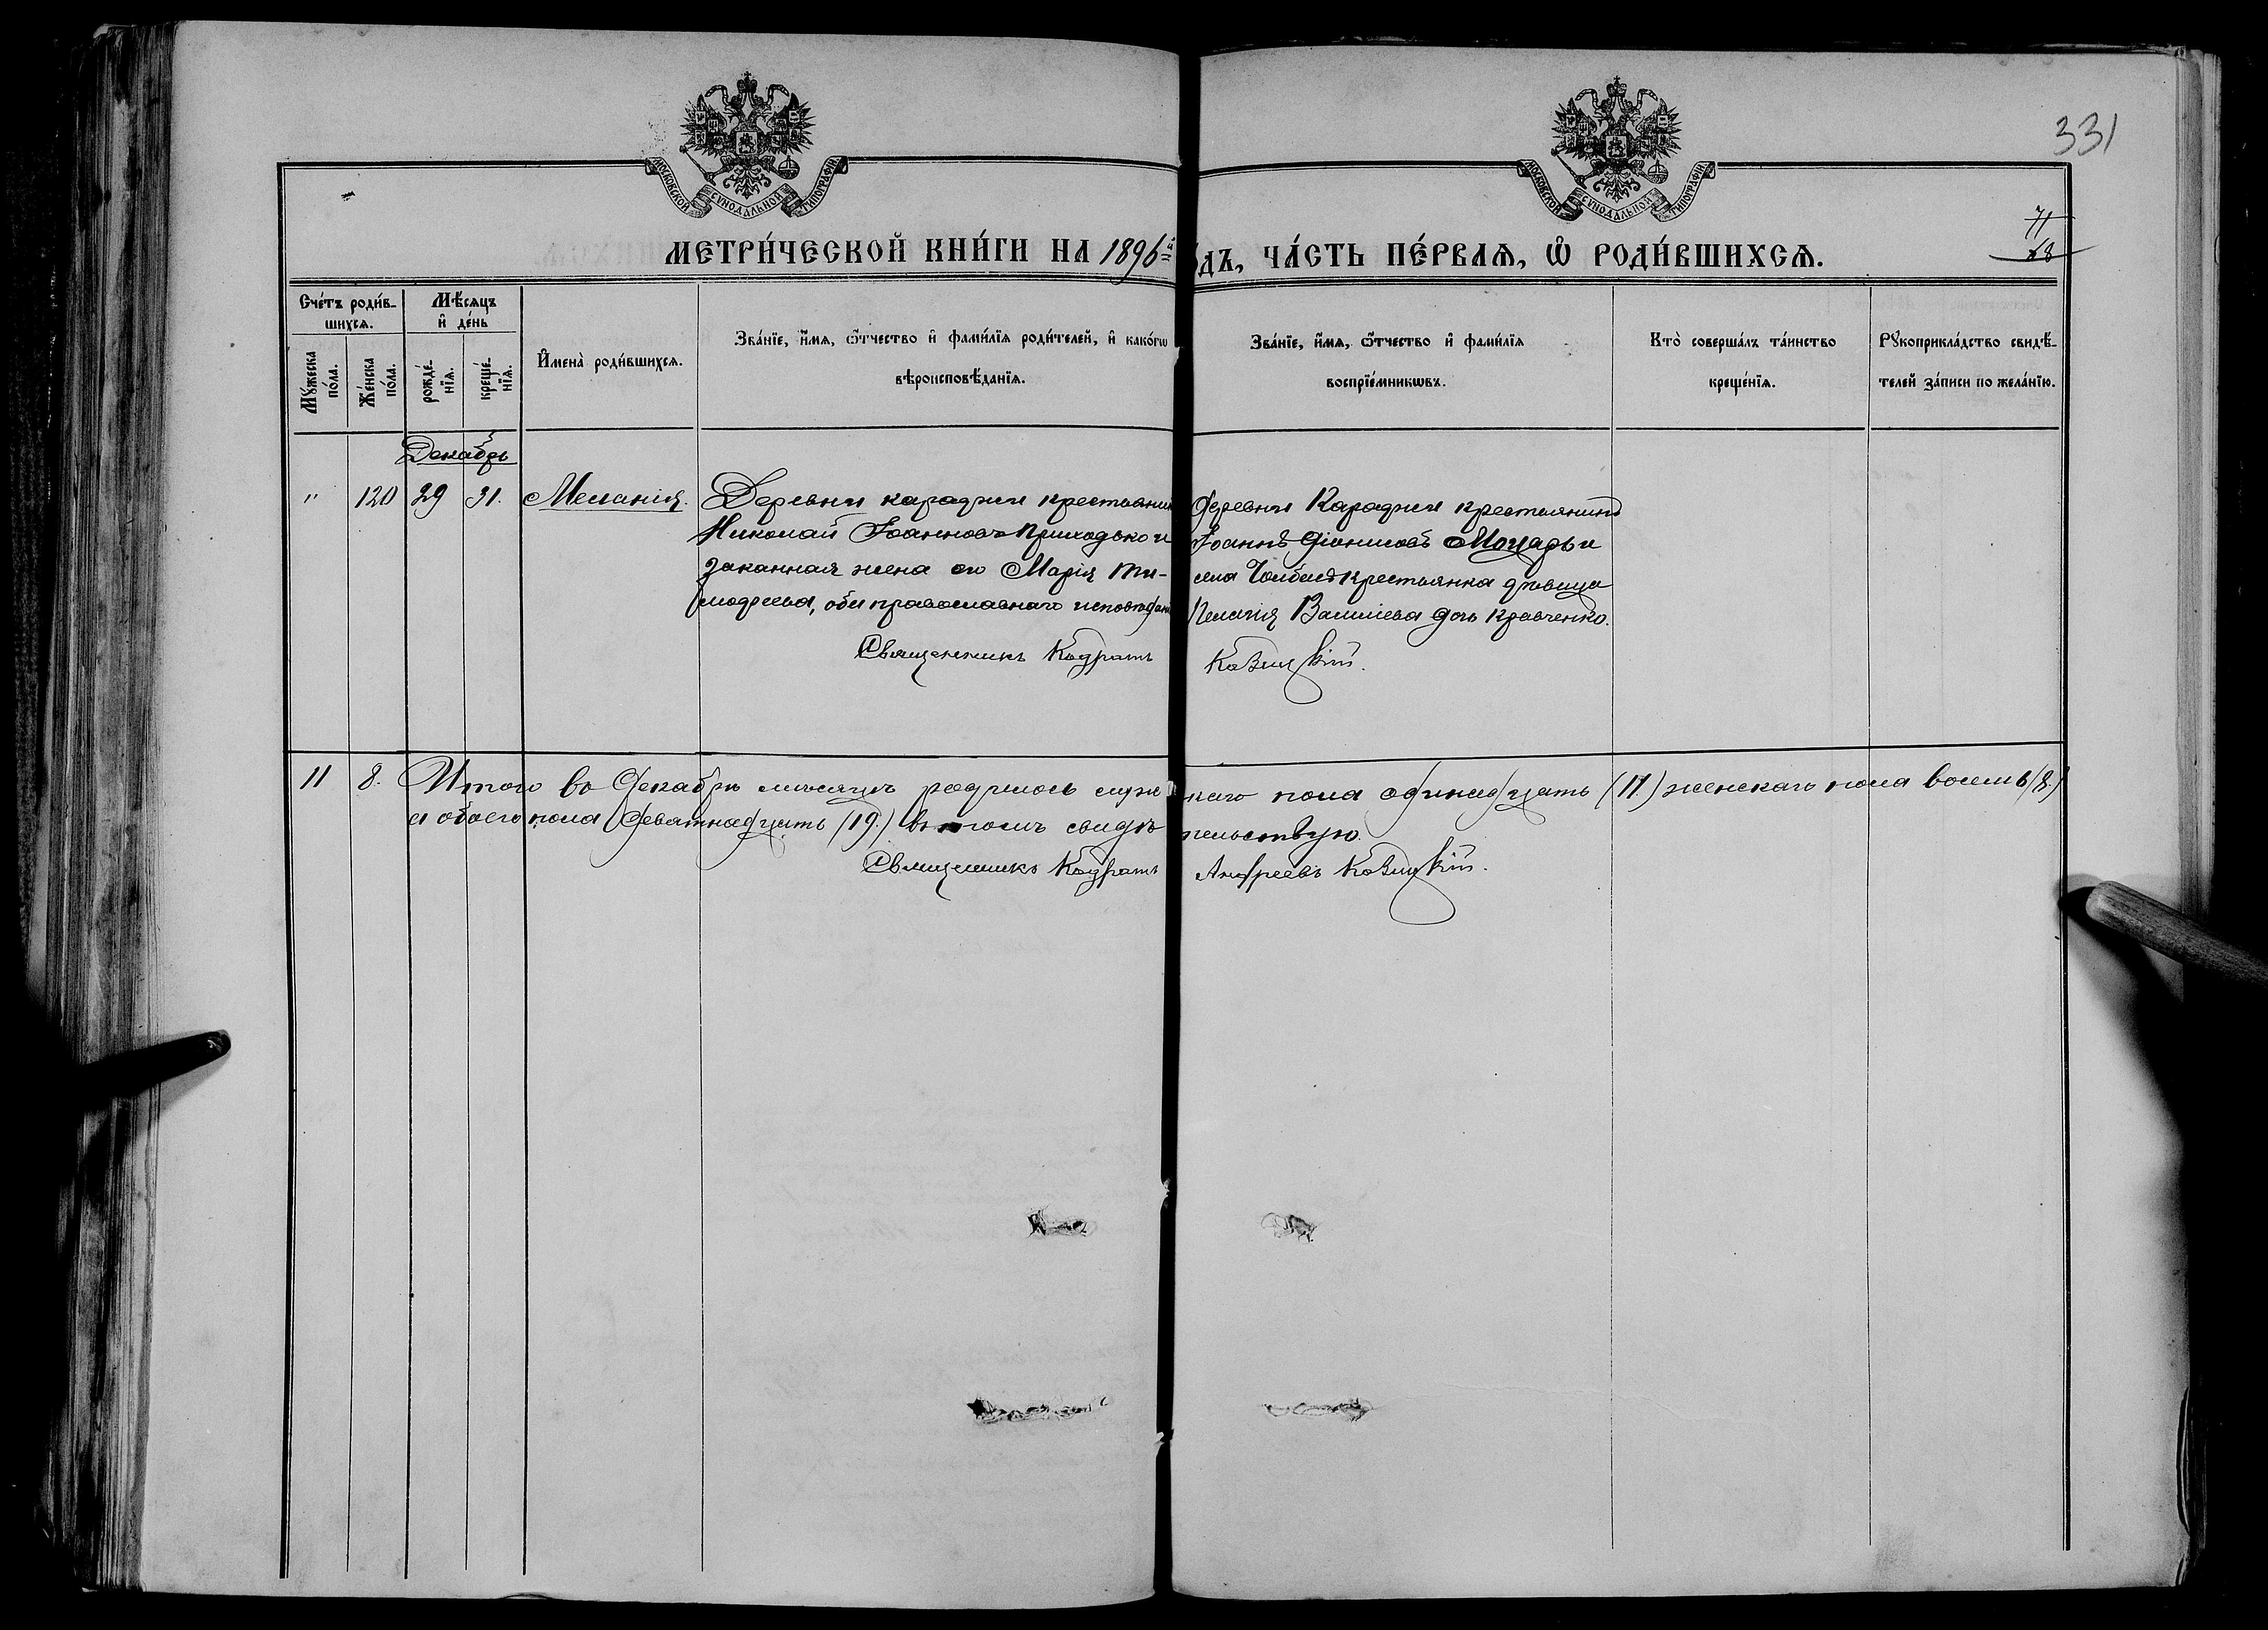 331
МОСКОВСКОЙ СѴНОДАЛЬНОЙ ТИПОГРАФІИ
МОСКОВСКОЙ СѴНОДАЛЬНОЙ ТИПОГРАФІИ
71
МЕТРИ́ЧЕСКОЙ КНИ́ГИ НА 1896й
ДЪ, ЧА́СТЬ ПЕ́РВАѦ, Ѡ҆ РОДИ́ВШИХСѦ.
Сче́тъ роди́в-
шихсѧ.
Мꙋ́жеска по́ла.
Же́нска по́ла.
Мѣ́сѧцъ
и҆ де́нь
рожде́-нїѧ.
креще́-нїѧ.
И҆мена̀ роди́вшихсѧ.
Зва́нїе, и҆́мѧ, ѻ҆́тчество и҆ фами́лїѧ роди́телей, и҆ како́гѡ
вѣроисповѣ́данїѧ.
Зва́нїе, и҆́мѧ, ѻ҆́тчество и҆ фами́лїѧ
воспрїе́мникѡвъ.
Кто̀ соверша́лъ та́инство
креще́нїѧ.
Рꙋкоприкла́дство свидѣ́-
телей за́писи по жела́нїю.
Декабрь
" 120 29 31. Меланія.
Деревни караджи крестьянин
Николай Іоанновъ Приходько и
законная жена его Марія Ти-
модеева, оба православнаго исповѣдан
Священникъ Кодратъ
Деревни Караджи крестьянинъ
Іоаннъ Діонисовъ Моцарь и
села крестьянка дѣвица
Пелагія Василіева дочь Кравченко.
Козицкій.
11 8. Итого въ Декабрѣ мѣсяцѣ родилось муже
скаго пола одинадцать (11) женскаго пола восемь (8.)
а обоего пола девятнадцать (19.) въ томъ свидѣ
тельствую.
Священникъ Кодратъ
Андреевъ Козицкій.